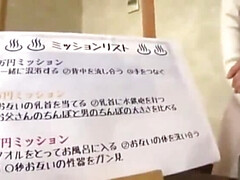 ♨♨ ミッションリスト ♨♨
万円ミッション
一緒に混浴する ②背中を流し合う ③手をつなぐ
万円ミッション
お互いの乳首を当てる ②乳首に水鉄砲を打つ
お父さんのちんぽと男のちんぽの大きさを比べる
万円ミッション
タオルをとってお風呂に入る ②お互いの体を洗い合う
〇秒お互いの性器をガン見